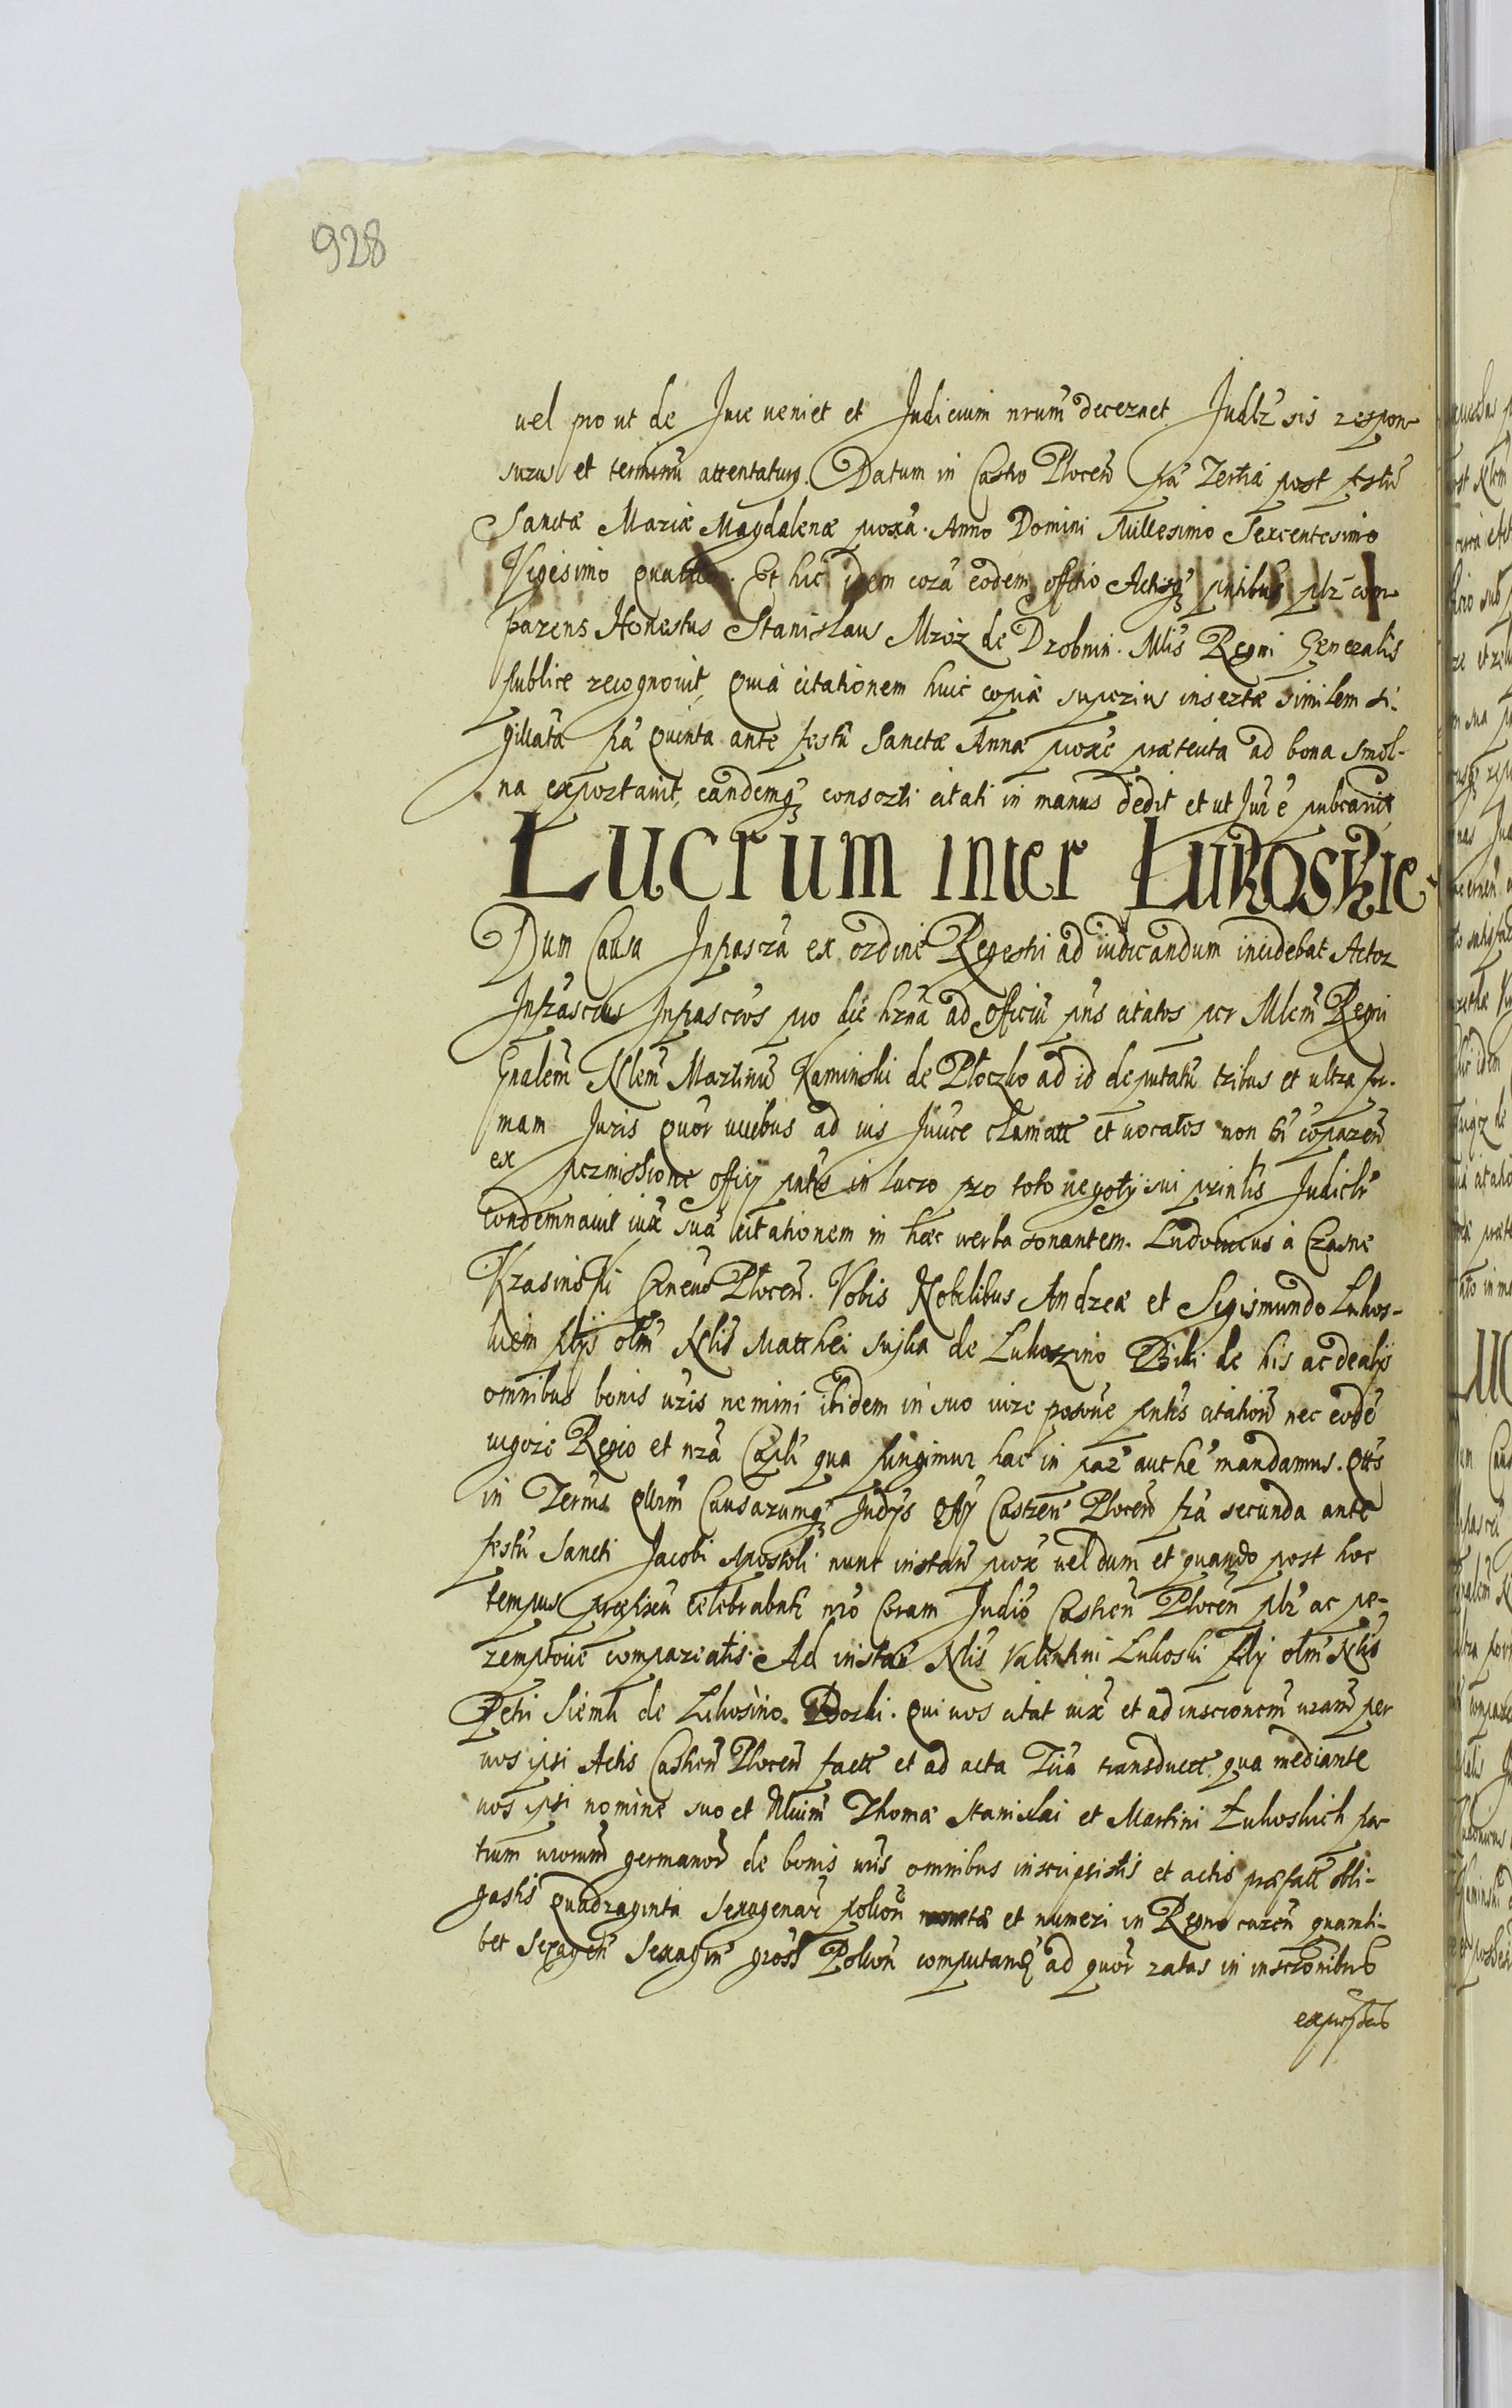 928
vel prout de Jure veniet et Judicium nrum decernet Judlr sis respon-
surus et terminu attentatur. Datum in Castro Plocen fa Tertia post festu
Sanctæ Mariæ Magdalenæ proxa. Anno Domini Millesimo Sexcentesimo
Vigesimo quarto. Et hic idem cora eodem officio Actisq pntibus plr com-
parens Honestus Stanislaus Mroz de Drobnin. Mlis Regni Generalis
publice recognovit, quia citationem huic copiæ superius insertæ similem si-
gillata fa quinta ante festu Sanctæ Annæ proxe præterita ad bona Smol-
na exportavit, eandemq consorti citati in manus dedit et ut Jur e pubcavit
Lucrum inter Lukoskie
Dum Causa Infrascra ex ordine Regestri ad iudicandum incidebat Actor
Infrascrus Infrascros pro die hrna ad officiu pns citatos per Mlem Regni
Gnalem Nlem Martinu Kaminski de Ploczko ad id deputatu tribus et ultra for-
mam Juris quor vicibus ad ius Juice clamatt et vocatos non hi coparen
ex permissione officij pntis in lucro pro toto negotij sui prinlis Judiclr
condemnavit iux sua citationem in hæc verba sonantem. Ludovicus a Crasne
Krasinski Ceneus Plocen. Vobis Nobilibus Andreæ et Sigismundo Lukos-
kiem filijs olm Nlis Matthei sujka de Lukoszino Biki de his ac de alijs
omnibus bonis vris nemini ibidem in suo iure pntis citation nec eode
vigore Regio et nra Capli qua fungimur hac in par authe mandamus. Qtts
in Termis qllrm Causarumq Judijs Offij Castren Plocen fra secunda ante
festu Sancti Jacobi Apostoli nunc instan prox vel dum et quando post hoc
tempus præfixu celebrabntr nro Coram Judio Castren Plocen plr ac pe-
remptorie compareatis. Ad instan Nlis Valentini Lukoski filij olm Nlis
Petri Siemk de Lukosino. Borki. Qui vos citat iux et ad inscrionem vram per
vos ipsi Actis Castren Plocen factt et ad acta Tria transductt qua mediante
vos ipsi nomine suo et Nlium Thomæ Stanislai et Martini Lukoskich fra-
trum vrorum germanor de bonis vris omnibus inscripsistis et actis præfatt obli-
gastis quadraginta Sexagenar polon monetæ et numeri in Regno curen quamli-
bet Sexagen Sexagin gross Polon computan ad quor ratas in inscronibus
expressas